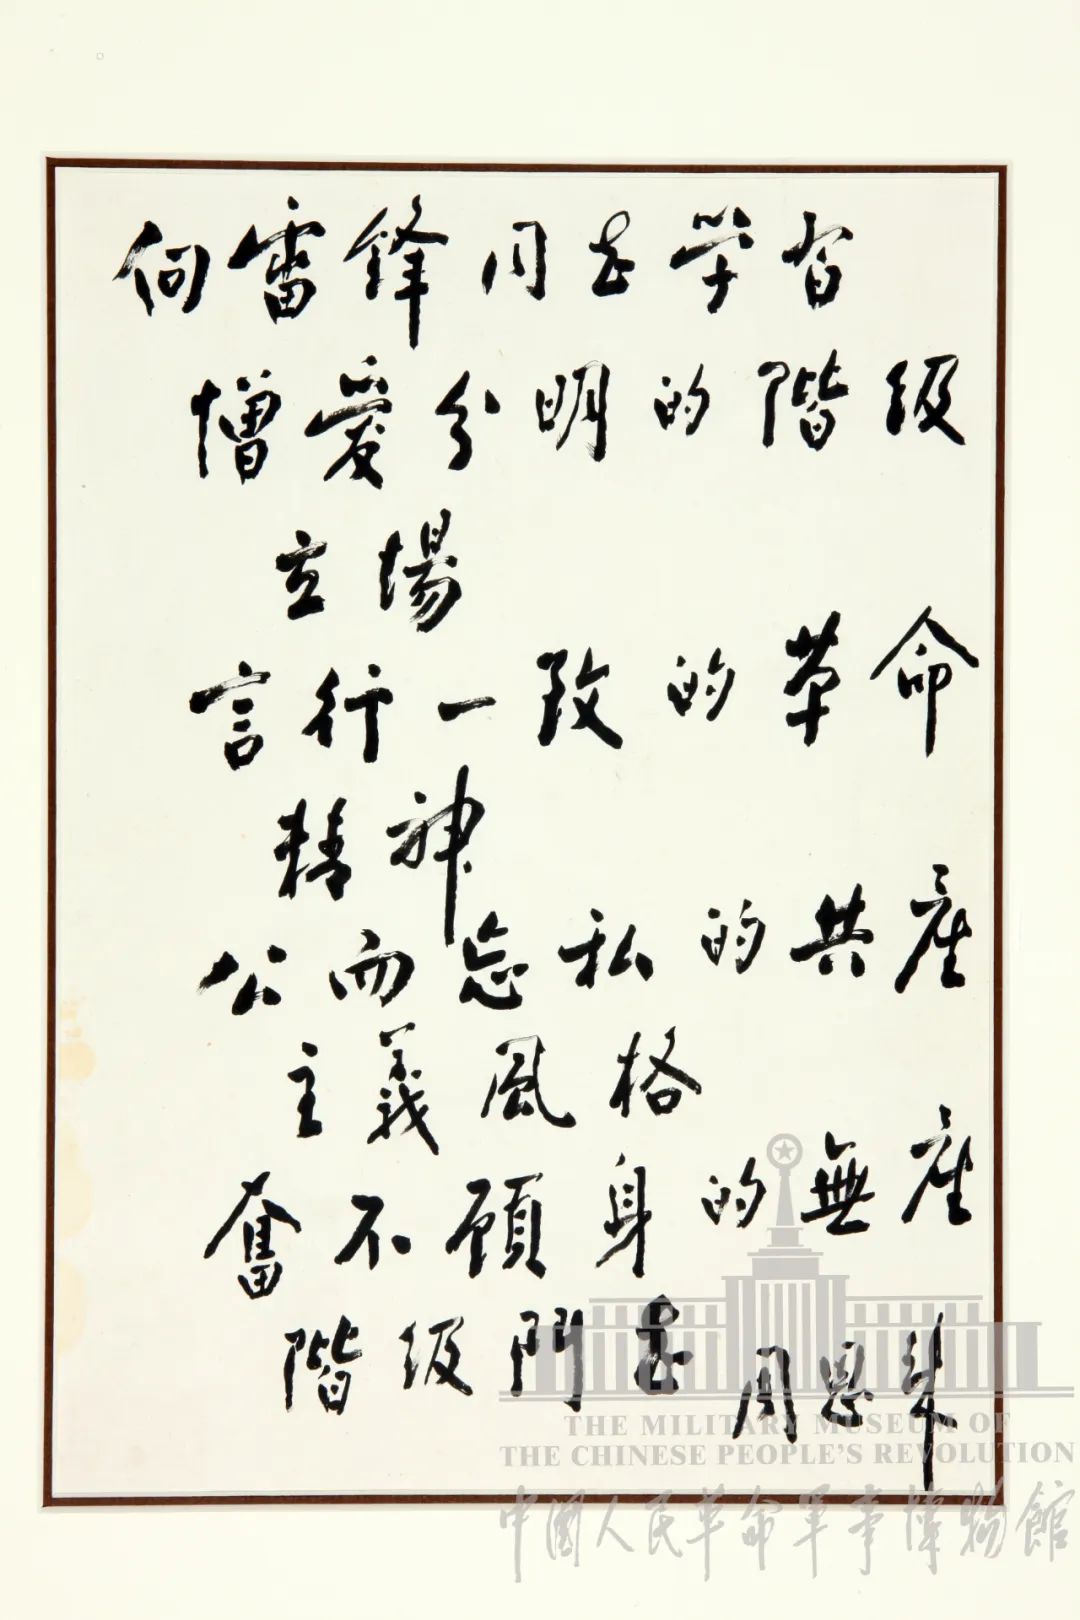 向雷锋同志学习
憎爱分明的階级
立場
言行一致的革命
精神
公而忘私的共産
主義風格
奮不顧身的無産
階级鬥志 周恩来
THE MILITARY MUSEUM OF
THE CHINESE PEOPLE'S REVOLUTION
中国人民革命军事博物館